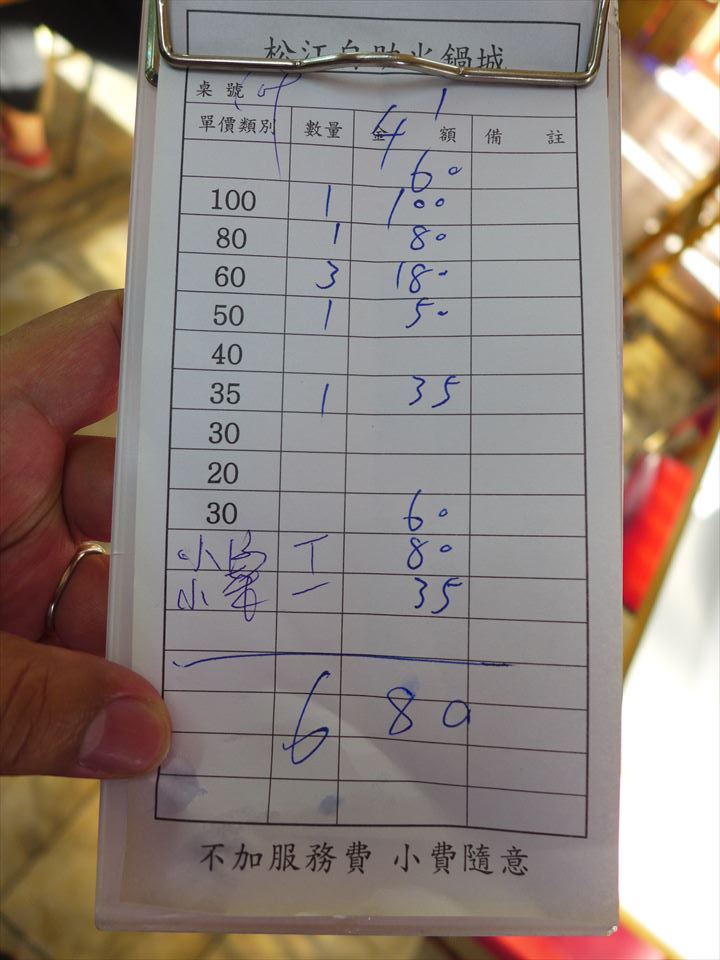 松江自助火鍋城
桌號
1
單價類別 數量 金額 備註
4
60
100 1 100
80 1 80
60 3 180
50 1 50
40
35 1 35
30
20
30 60
小 80
小 一 35
680
不加服務費 小費隨意